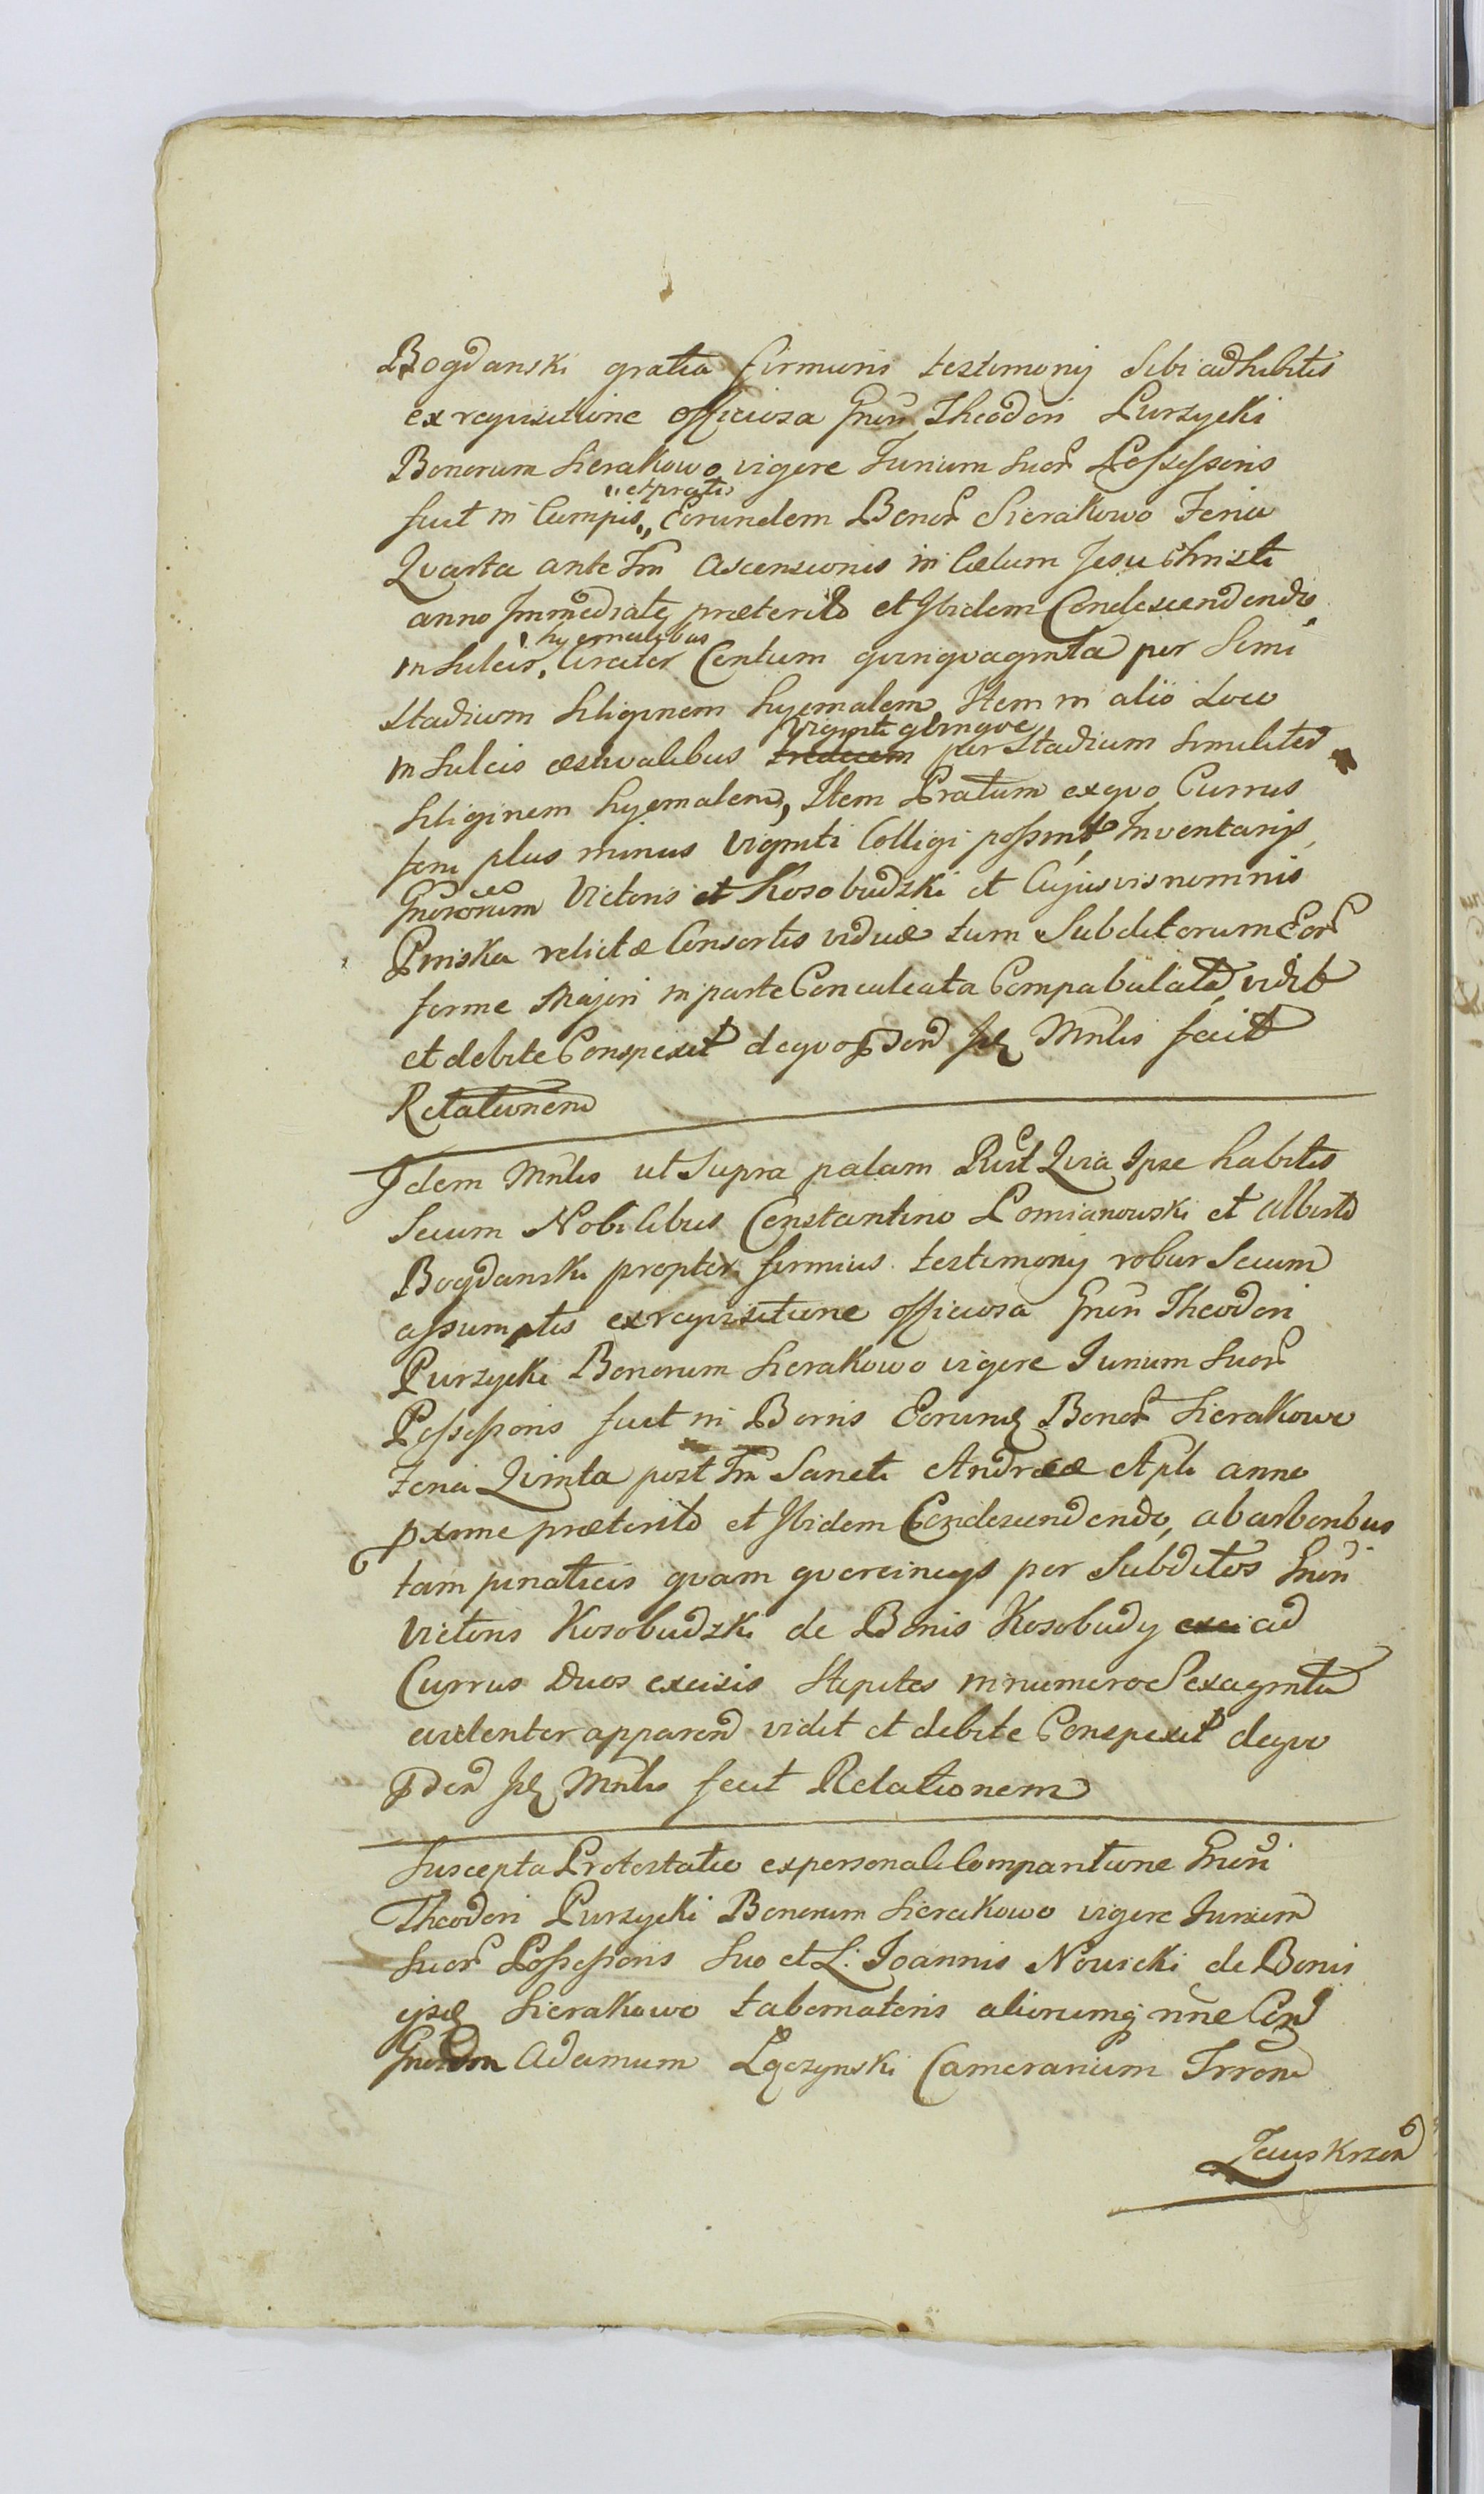 Bogdanski gratia firmioris testimonij sibi adhibitis
ex requisitione officiosa Gneri Theodori Purzycki
Bonorum Sierakowo vigore Jurium suor Possessoris
fuit in Campis „et pratis„ Eorundem Bonor Sierakowo Feria
Qvarta ante Fm Ascensionis in Cœlum Jesu Christi
anno Immediate præterito et Ibidem Condescendendo
in Sulcis hyemalibus Circiter Centum qvinqvaginta per Semi
stadium siliginem hyemalem, Item in alio Loco
in Sulcis æstivalibus tredecem Viginti qvinqve per Stadium similiter
siliginem hyemalem, Item Pratum ex qvo Currus
feni plus minus viginti Colligi possint, Inventarijs
Gnerorum Victoris et Kosobudzki et Cujusvis nominis
Pniska relictæ Consortis viduæ tum Subditorum Eor
ferme Majori in parte Conculcata Compabulata, vidit
et debite Conspexit de qvo Pden Idem Mnlis fecit
Relationem
Idem Mnlis ut Supra palam Rlt Qvia Ipse habitis
Secum Nobilibus Constantino Pomianowski et Alberto
Bogdanski propter firmius testimonij robur Secum
assumptis ex reqvisitione officiosa Gneri Theodori
Purzycki Bonorum Sierakowo vigore Jurium Suor
Possessoris fuit in Bonis Eorund Bonor Sierakowo
Feria Qvinta post Fm Sancti Andreæ Apli anno
pxime præterito et Ibidem Condescendendo, ab arboribus
tam pinaticis qvam qvercineijs per Subditos Gneri
Victoris Kosobudzki de Bonis Kosobudy exci ad
Currus Duos excisis Stipites in numero Sexaginta
evidenter apparen vidit et debite Conspexit de qvo
Pden Idem Mnlis fecit Relationem
Suscepta Protestatio ex personali Comparitione Gneri
Theodori Purzycki Bonorum Sierakowo vigore Jurium
Suor Possessoris suo et L: Joannis Nowicki de Bonis
ijsd Sierakowo tabernatoris aliorumq nne Con
Gnerum Adamum Łączynski Camerarium Trrem
Zawskrzen